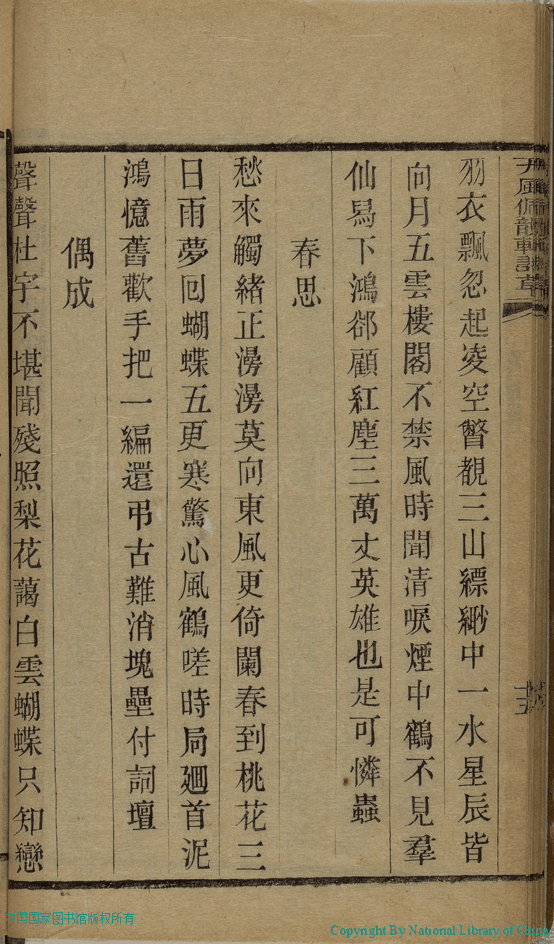 羽衣飄忽起凌空瞥覩三山縹緲中一水星辰皆
向月五雲樓閣不禁風時聞清唳煙中鶴不見羣
仙舄下鴻郤顧紅塵三萬丈英雄也是可憐蟲
春思
愁來觸緒正漫漫莫向東風更倚闌春到桃花三
日雨夢回蝴蝶五更寒驚心風鶴嗟時局迴首泥
鴻憶舊歡手把一編還弔古難消塊壘付詞壇
偶成
聲聲杜宇不堪聞殘照梨花藹白雲蝴蝶只知戀
中国国家图书馆版权所有
Copyright By National Library of China